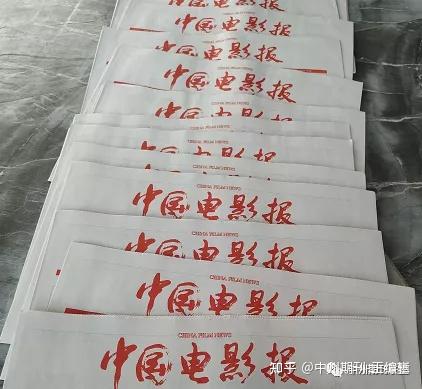 中国电影报
中国电影报
中国电影报
中国电影报
CHINA FILM NEWS
中国电影报
CHINA FILM NEWS
中国电影报
CHINA FILM NEWS
中国电影报
CHINA FILM NEWS
中国电影报
CHINA FILM NEWS
中国电影报
知乎 @中科期刊